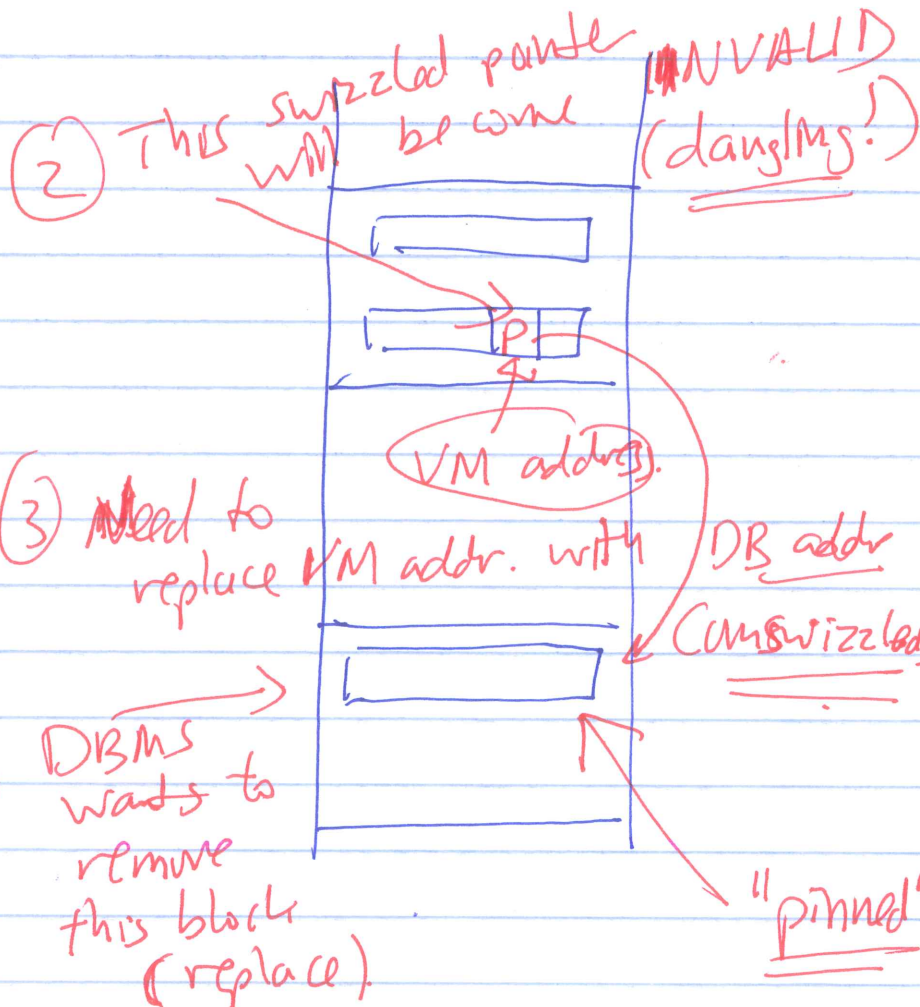 This swizzled pointer
will become INVALID
(dangling!)
②
P
VM address.
③ Need to
replace VM addr. with DB addr
(unswizzled
DBMS
wants to
remove
this block
(replace)
"pinned"